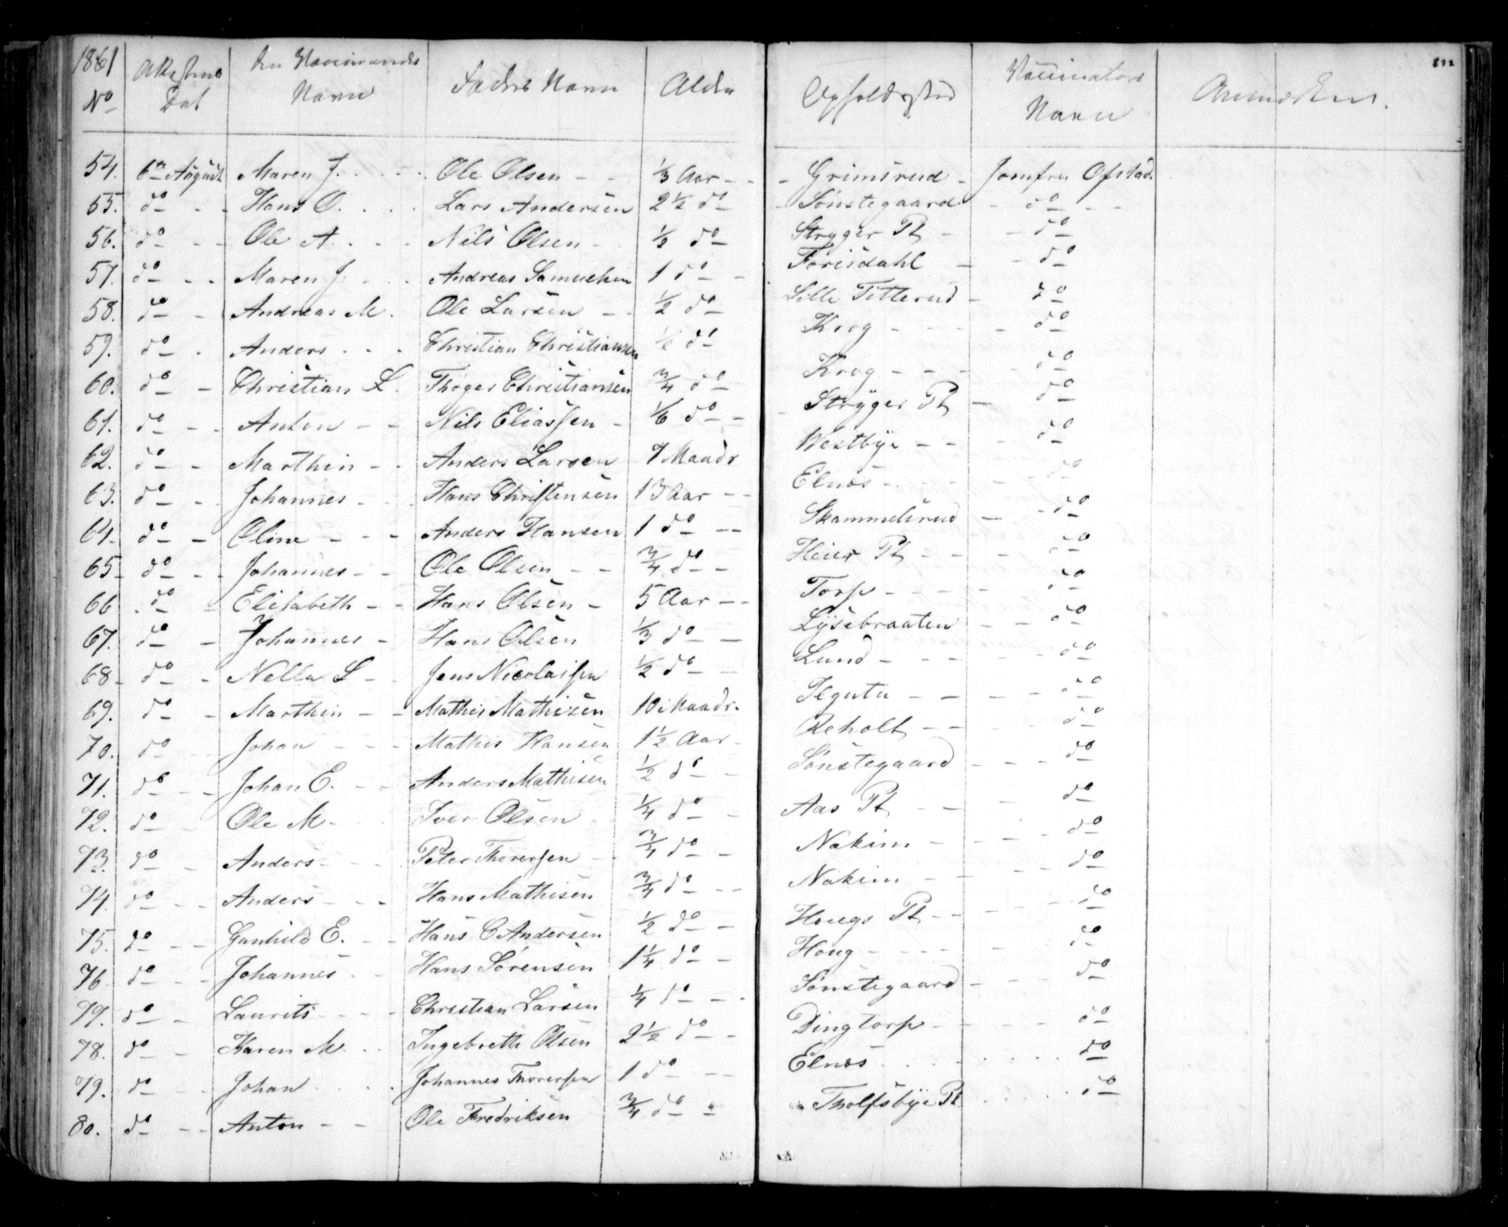 1861 No | Attestens Dat | Den Vaccineredes Navn | Faders Navn | Alder | Opholdssted | Vaccinators Navn | Anmærkn.
54. | 6te August | Maren J. | Ole Olsen | 1/3 Aar | Grimsrud | Jomfru Ofstad
55. | do | Hans O. | Lars Andersen | 2 1/2 do | Sønstegaard | do
56. | do | Ole A. | Nils Olsen | 1/3 do | Stryger Pl | do
57. | do | Maren J. | Andreas Samuelsen | 1 do | Forisdahl | do
58. | do | Andreas M. | Ole Larsen | 1/2 do | Lille Titterud | do
59. | do | Anders | Christian Christiansen | 1/2 do | Krog | do
60. | do | Christian L. | Thøger Christiansen | 3/4 do | Krog | do
61. | do | Anton | Nils Eliassen | 1/6 do | Strÿger Pl | do
62. | do | Marthin | Anders Larsen | 7 Maadr | Westbÿe | do
63. | do | Johannes | Hans Christensen | 13 Aar | Elnæs | do
64. | do | Oline | Anders Hansen | 1 do | Skammelsrud | do
65 | do | Johannes | Ole Olsen | 3/4 do | Heier Pl | do
66 | do | Elisabeth | Hans Olsen | 5 Aar | Torp | do
67. | do | Johannes | Hans Olsen | 1/3 do | Lÿsebraaten | do
68 | do | Nella L | Jens Nicolaisen | 1/2 do | Lund | do
69. | do | Marthin | Mathis Mathisen | 10 Maadr. | | do
70. | do | Johan | Mathis Hansen | 1 1/2 Aar | Reholt | do
71. | do | Johan E. | Anders Mathisen | 1/2 do | Sønstegaard | do
72. | do | Ole M | Iver Olsen | 1/4 do | Aas Pl | do
73. | do | Anders | Peter Thoresen | 3/4 do | Nakim | do
74. | do | Anders | Hans Mathisen | 3/4 do | Nakim | do
75. | do | Gunhild E. | Hans C Andersen | 1/2 do | Hougs Pl | do
76 | do | Johannes | Hans Sørensen | 1 1/4 do | Houg | do
77. | do | Laurits | Christian Larsen | 1/4 do | Sønstegaard | do
78. | do | Karen M. | Ingebreth Olsen | 2 1/2 do | Dingtorp | do
79. | do | Johan | Johannes Thoresen | 1 do | Elnæs | do
80. | do | Anton | Ole Fredriksen | 3/4 do | Tholfsbÿe Pl | do